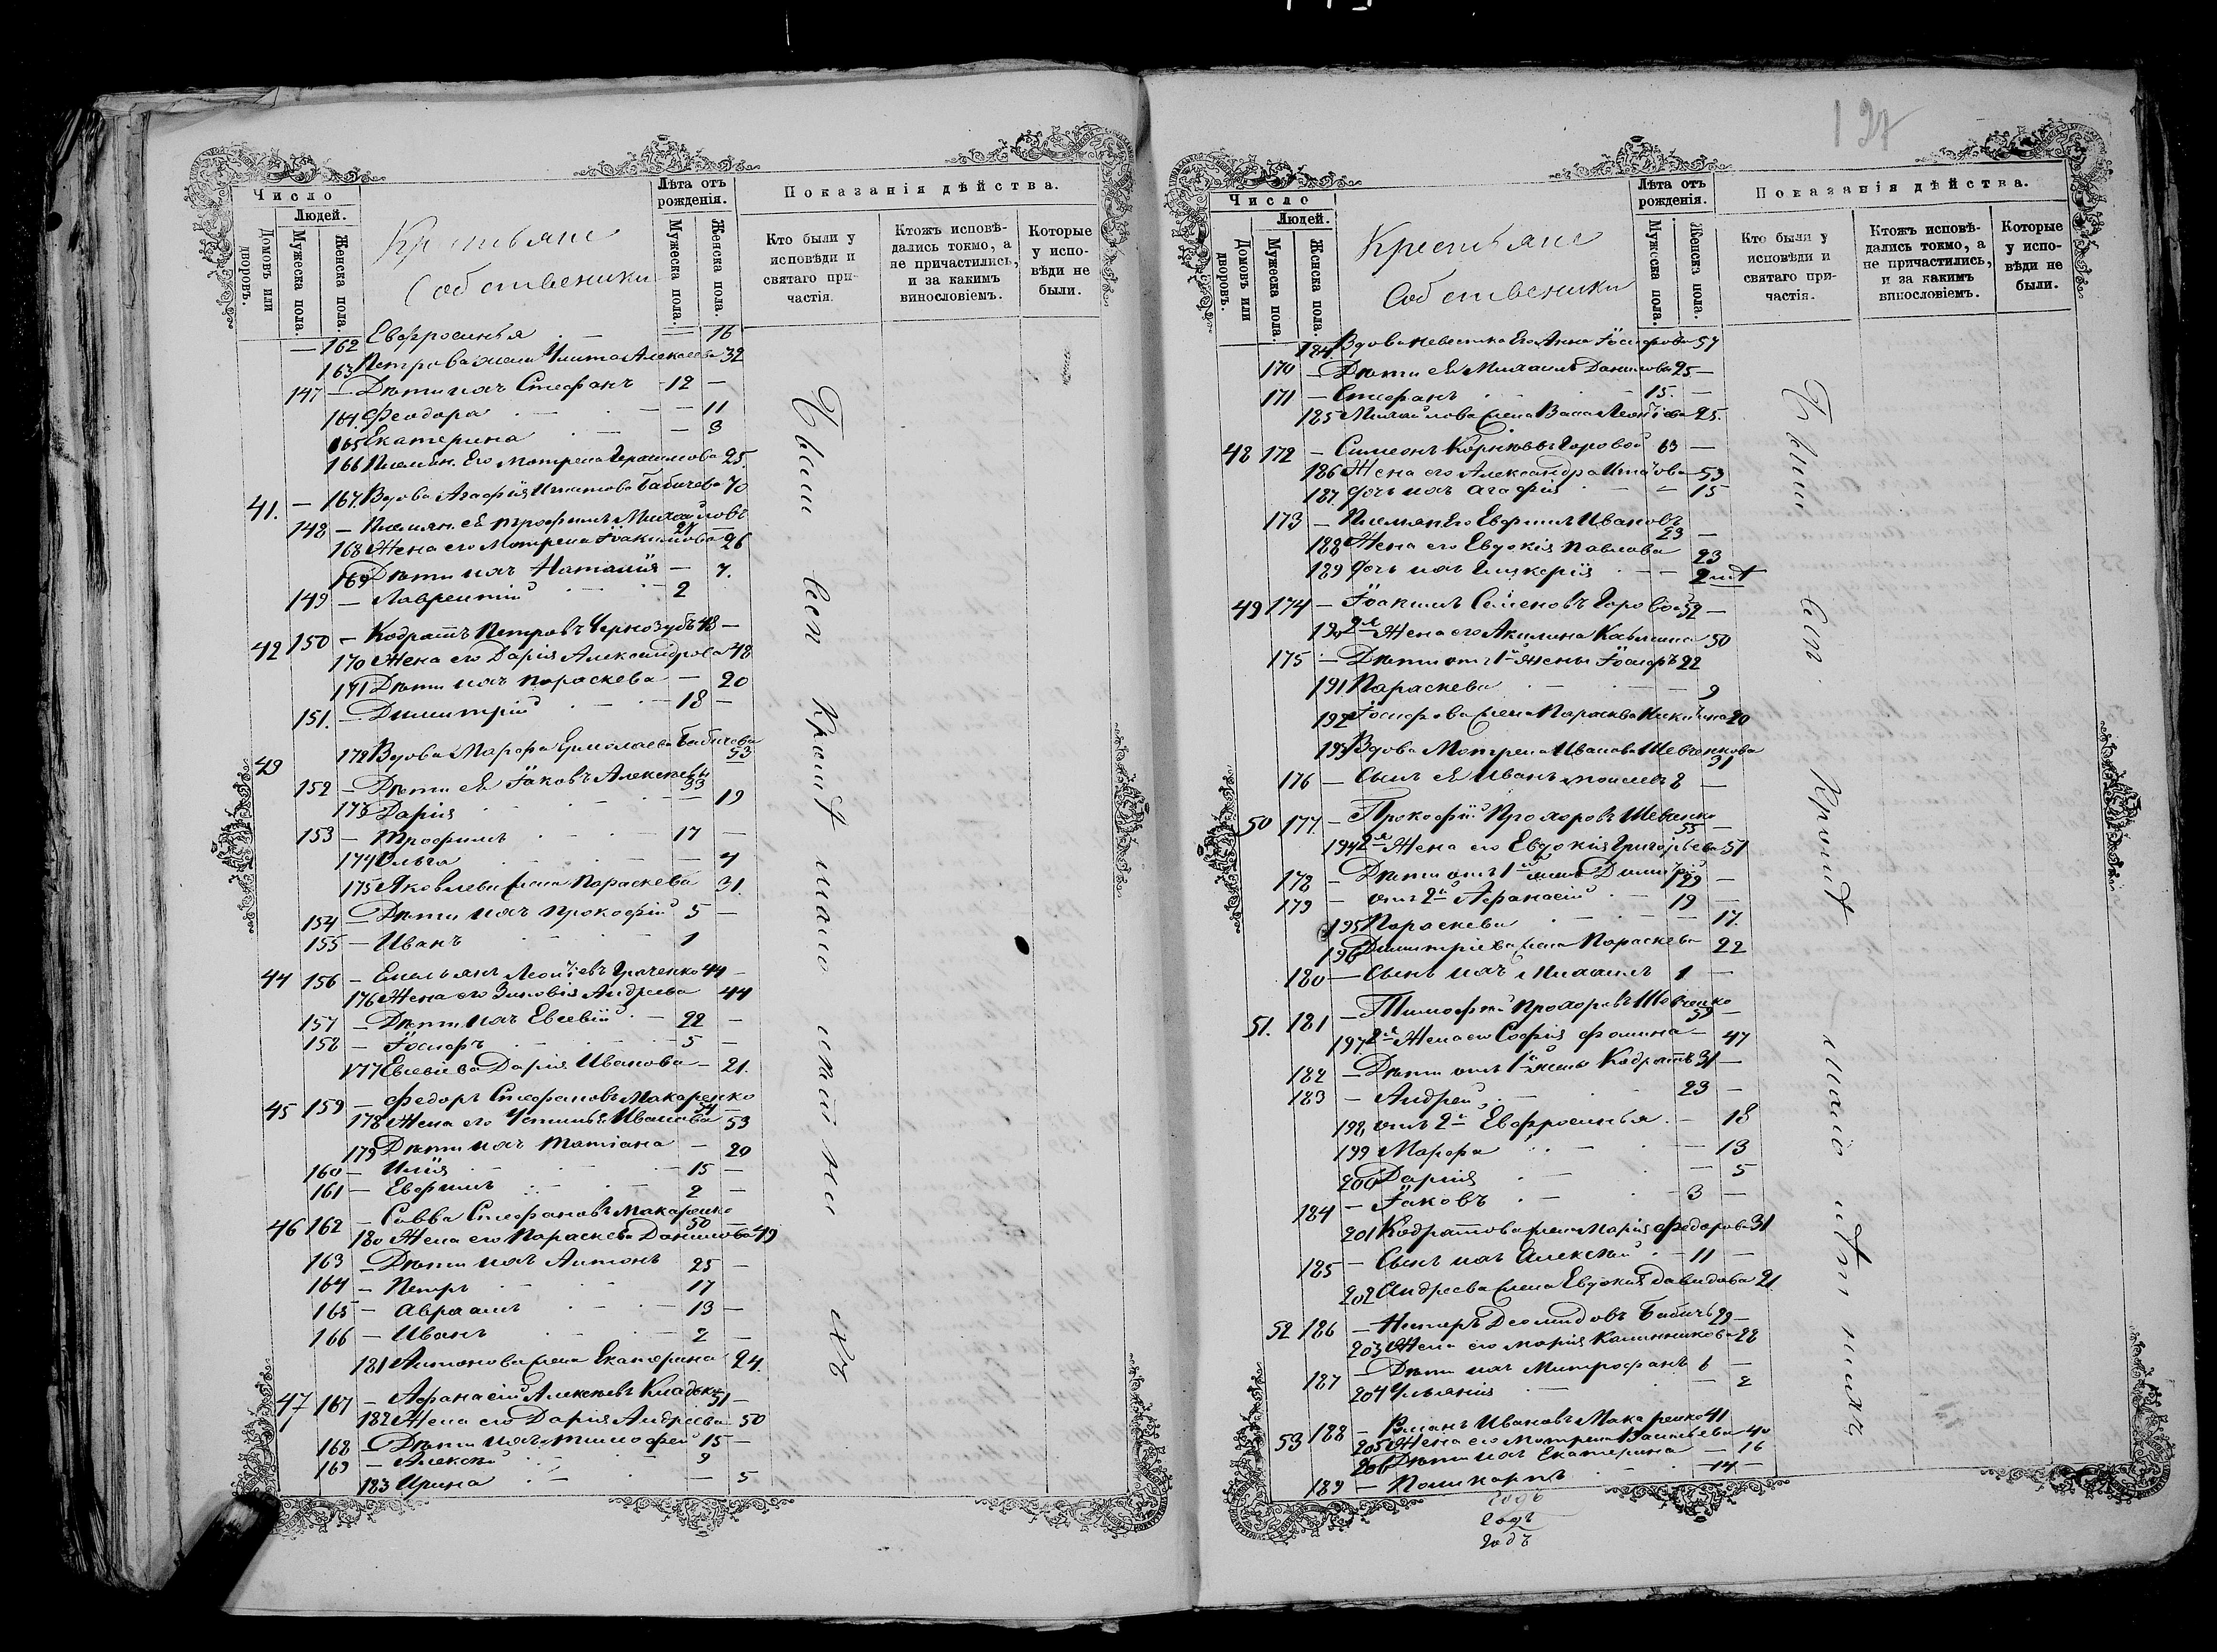 Число
Людей.
Домовъ или дворовъ.
Мужеска пола.
Женска пола.
Крестьяне
Собственики
Лѣта отъ рожденія.
Мужеска пола.
Женска пола.
Показанія дѣйства.
Кто были у исповѣди и святаго причастія.
Ктожъ исповѣдались токмо, а не причастились, и за какимъ винословіемъ.
Которые у исповѣди не были.
— 162 Евфросинья — — 16
163 Петрова жена Улита Алексеева 32
147 — Дѣти ихъ Стефанъ 12 —
164 Феодора — — 11
165 Екатерина — 3
166 Племян. Его Мотрена Герасимова 25.
41. — 167. Вдова Агафія Игнатова Бабичева 70
148 — Племян. ея Трофимъ Михайловъ 27 —
168 Жена его Мотрена Іоакимова 26
169 Дѣти ихъ Наталія — 7.
149 — Лаврентій — 2
42 150 — Кодратъ Петровъ Чернозубъ 48 —
170 Жена его Дарія Александрова 48
171 Дѣти ихъ Параскева — 20
151. — Димитрій — 18 —
43 172 Вдова Марфа Ермолаева Бабичева 53
152 — Дѣти ея Іаковъ Алексѣевъ 33
173 Дарія — — 19
153 — Трофимъ — 17 —
174 Ольга — — 7
175 Яковлева жена Параскева 31.
154 — Дѣти ихъ Прокофій 5 —
155 — Иванъ — 1
44 156 — Емельянъ Леонтьевъ 44 —
176 Жена его Зиновія Андреева 44
157 — Дѣти ихъ Евсевій — 22 —
158 — Іосифъ — 5 —
177 Евсевіева Дарія Иванова — 21.
45 159 — Федоръ Стефановъ Макаренко 54 —
178 Жена его Устинья Иванова 53
179 Дѣти ихъ Татіана — 20
160 — Илія — 15 —
161 — Евфимъ — 2 —
46 162 — Савва Стефановъ Макаренко 50 —
180 Жена его Параскева Данилова 49
163 — Дѣти ихъ Антонъ 25 —
164 — Петръ — 17
165 — Авраамъ — 13 —
166 — Иванъ — 2 —
181 Антонова жена Екатерина 24.
47 167 — Афанасій Алексѣевъ 51 —
182 Жена его Дарія Андреева 50
168 — Дѣти ихъ Тимофей 15 —
169 — Алексѣй — 9
183 Ирина — — 5
Были все кромѣ мало их
127
Число
Людей.
Домовъ или дворовъ.
Мужеска пола.
Женска пола.
Крестьяне
Собственики
Лѣта отъ рожденія.
Мужеска пола.
Женска пола.
Показанія дѣйства.
Кто были у исповѣди и святаго причастія.
Ктожъ исповѣдались токмо, а не причастились, и за какимъ винословіемъ.
Которые у исповѣди не были.
184 Вдова невестка Его Анна Іосифова 57
170 — Дѣти ея Михаилъ Данилова 25 —
171 — Стефанъ — 15. —
185 Михайлова жена Васса Леонтіева 25.
48 172 — Симеонъ Горовой 63 —
186 Жена его Александра Игнатова 53
187. дочь ихъ Агафія — — 15
173 — Племян Его Евфимъ Ивановъ 23 —
188 Жена его Евдокія Павлова 23
189 дочь ихъ Гликерія — — 2
49 174 — Іоакимъ Семеновъ Горовой 52 —
190 2я Жена его Акилина 50
175 — Дѣти отъ 1й жены Іосифъ 22
191. Параскева — — 9
192 Іосифова жена Параскева Никитина 20
193 Вдова Мотрена Иванова Шевченкова 31
176 — Сынъ ея Иванъ 8 —
50 177. — Прокофій Прохоровъ Шевченко 55 —
194 2я Жена его Евдокія Григорьева 51
178 — Дѣти отъ 1й жены Димитрій 29 —
179 — отъ 2й Афанасій — 19 —
195 Параскева — 17.
196 Димитріева жена Параскева 22
180 — Сынъ ихъ Михаилъ 1 —
51. 181 — Тимофей Прохоровъ Шевченко 59 —
197 2я Жена его Софія Фомина — 47
182 — Дѣти отъ 1й жены Кодратъ 31 —
183 — Андрей — 23 —
198, отъ 2й Евфросинья — 18
199 Марфа — — 13
200 Дарія — — 5
184 — Іаковъ — 3 —
201 Кодратова жена Марія Федорова 31
185 — Сынъ ихъ Алексѣй — 11 —
202 Андреева жена Евдокія Давидова 21
52 186 — Бабичъ 29 —
203 Жена его Марія Калинникова 28
187 — Дѣти ихъ Митрофанъ 6 —
204 Ульянія — — 2
53 188 — Ивановъ Макаренко 41
205 Жена его Мотрена Васильева 40
206 Дѣти ихъ Екатерина — 16
189 — Поликарпъ — 14 —
Были все кромѣ мало
годъ
годъ
годъ